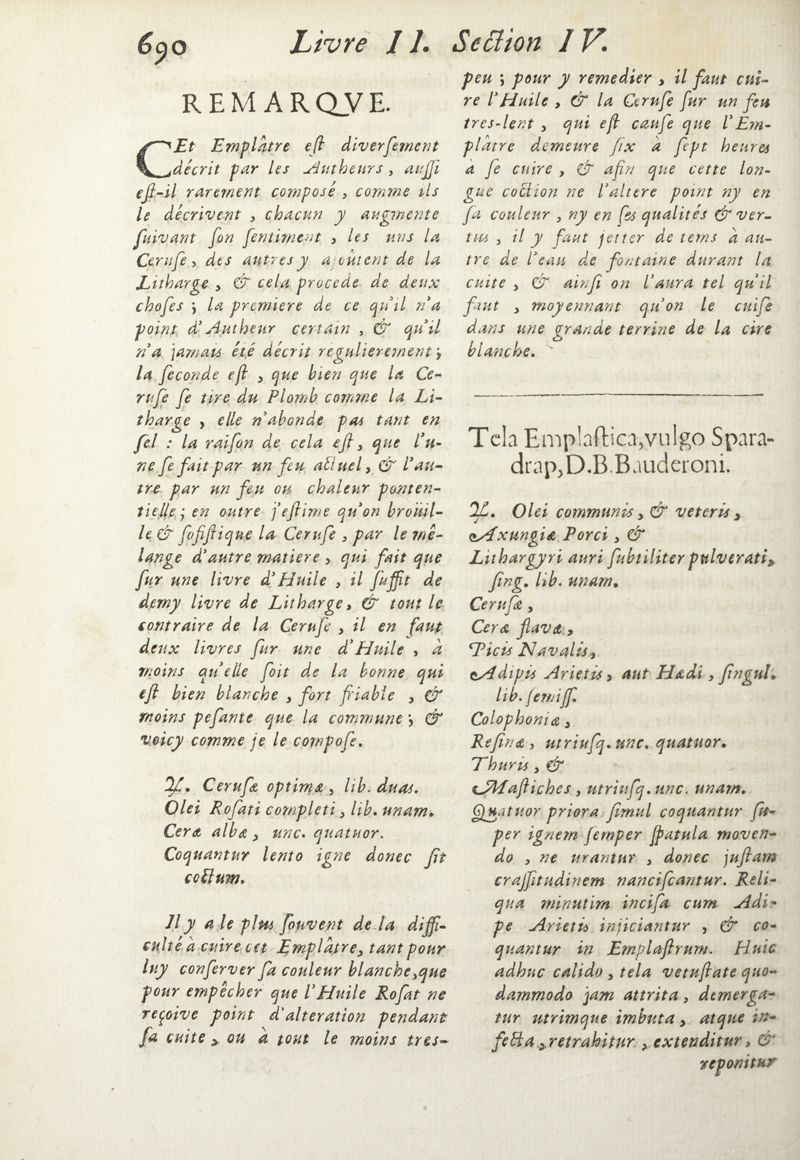 690 Livre II. Section IV.
REMARQVE.
CEt Emplâtre eſt diverſement
décrit par les Autheurs, auſſi
eſt-il rarement composé, comme ils
le décrivent, chacun y augmente
ſuivant ſon ſentiment, les uns la
Ceruſe, des autres y ajoûtent de la
Litharge, & cela procede de deux
choſes; la premiere de ce qu'il n'a
point d'Autheur certain, & qu'il
n'a jamais été décrit regulierement;
la ſeconde eſt, que bien que la Ce-
ruſe ſe tire du Plomb comme la Li-
tharge, elle n'abonde pas tant en
ſel : la raiſon de cela eſt, que l'u-
ne ſe fait par un feu actuel, & l'au-
tre par un feu ou chaleur ponten-
tielle; en outre j'eſtime qu'on broüil-
le & ſofiſtique la Ceruſe, par le mê-
lange d'autre matiere, qui fait que
ſur une livre d'Huile, il ſuffit de
demy livre de Litharge, & tout le
contraire de la Ceruſe, il en faut
deux livres ſur une d'Huile, à
moins qu'elle ſoit de la bonne qui
eſt bien blanche, fort friable, &
moins peſante que la commune; &
voicy comme je le compoſe.
℞. Ceruſæ optimæ, lib. duas.
Olei Roſati completi, lib. unam.
Ceræ albæ, unc. quatuor.
Coquantur lento igne donec ſit
coctum.
Il y a le plus ſouvent de la diffi-
culté à cuire cet Emplâtre, tant pour
luy conſerver ſa couleur blanche, que
pour empêcher que l'Huile Roſat ne
reçoive point d'alteration pendant
ſa cuite, ou à tout le moins tres-
peu; pour y remedier, il faut cui-
re l'Huile, & la Ceruſe ſur un feu
tres-lent, qui eſt cauſe que l'Em-
plâtre demeure ſix à ſept heures
à ſe cuire, & afin que cette lon-
gue coction ne l'altere point ny en
ſa couleur, ny en ſes qualités & ver-
tus, il y faut jetter de tems à au-
tre de l'eau de fontaine durant la
cuite, & ainſi on l'aura tel qu'il
faut, moyennant qu'on le cuiſe
dans une grande terrine de la cire
blanche.
Tela Emplaſtica, vulgo Spara-
drap, D.B.Bauderoni.
℞. Olei communis, & veteris,
Axungiæ Porci, &
Lithargyri auri ſubtiliter pulverati,
ſing. lib. unam.
Ceruſæ,
Ceræ flavæ,
Picis Navalis,
Adipis Arietis, aut Hædi, ſingul.
lib. ſemiſſ.
Colophoniæ,
Reſinæ, utriuſq. unc. quatuor.
Thuris, &
Maſtiches, utriuſq. unc. unam.
Quatuor priora ſimul coquantur ſu-
per ignem ſemper ſpatula moven-
do, ne urantur, donec juſtam
craſſitudinem nanciſcantur. Reli-
qua minutim inciſa cum Adi-
pe Arietis injiciantur, & co-
quantur in Emplaſtrum. Huic
adhuc calido, tela vetuſtate quo-
dammodo jam attrita, demerga-
tur utrimque imbuta, atque in-
fecta, retrahitur, extenditur, &
reponitur